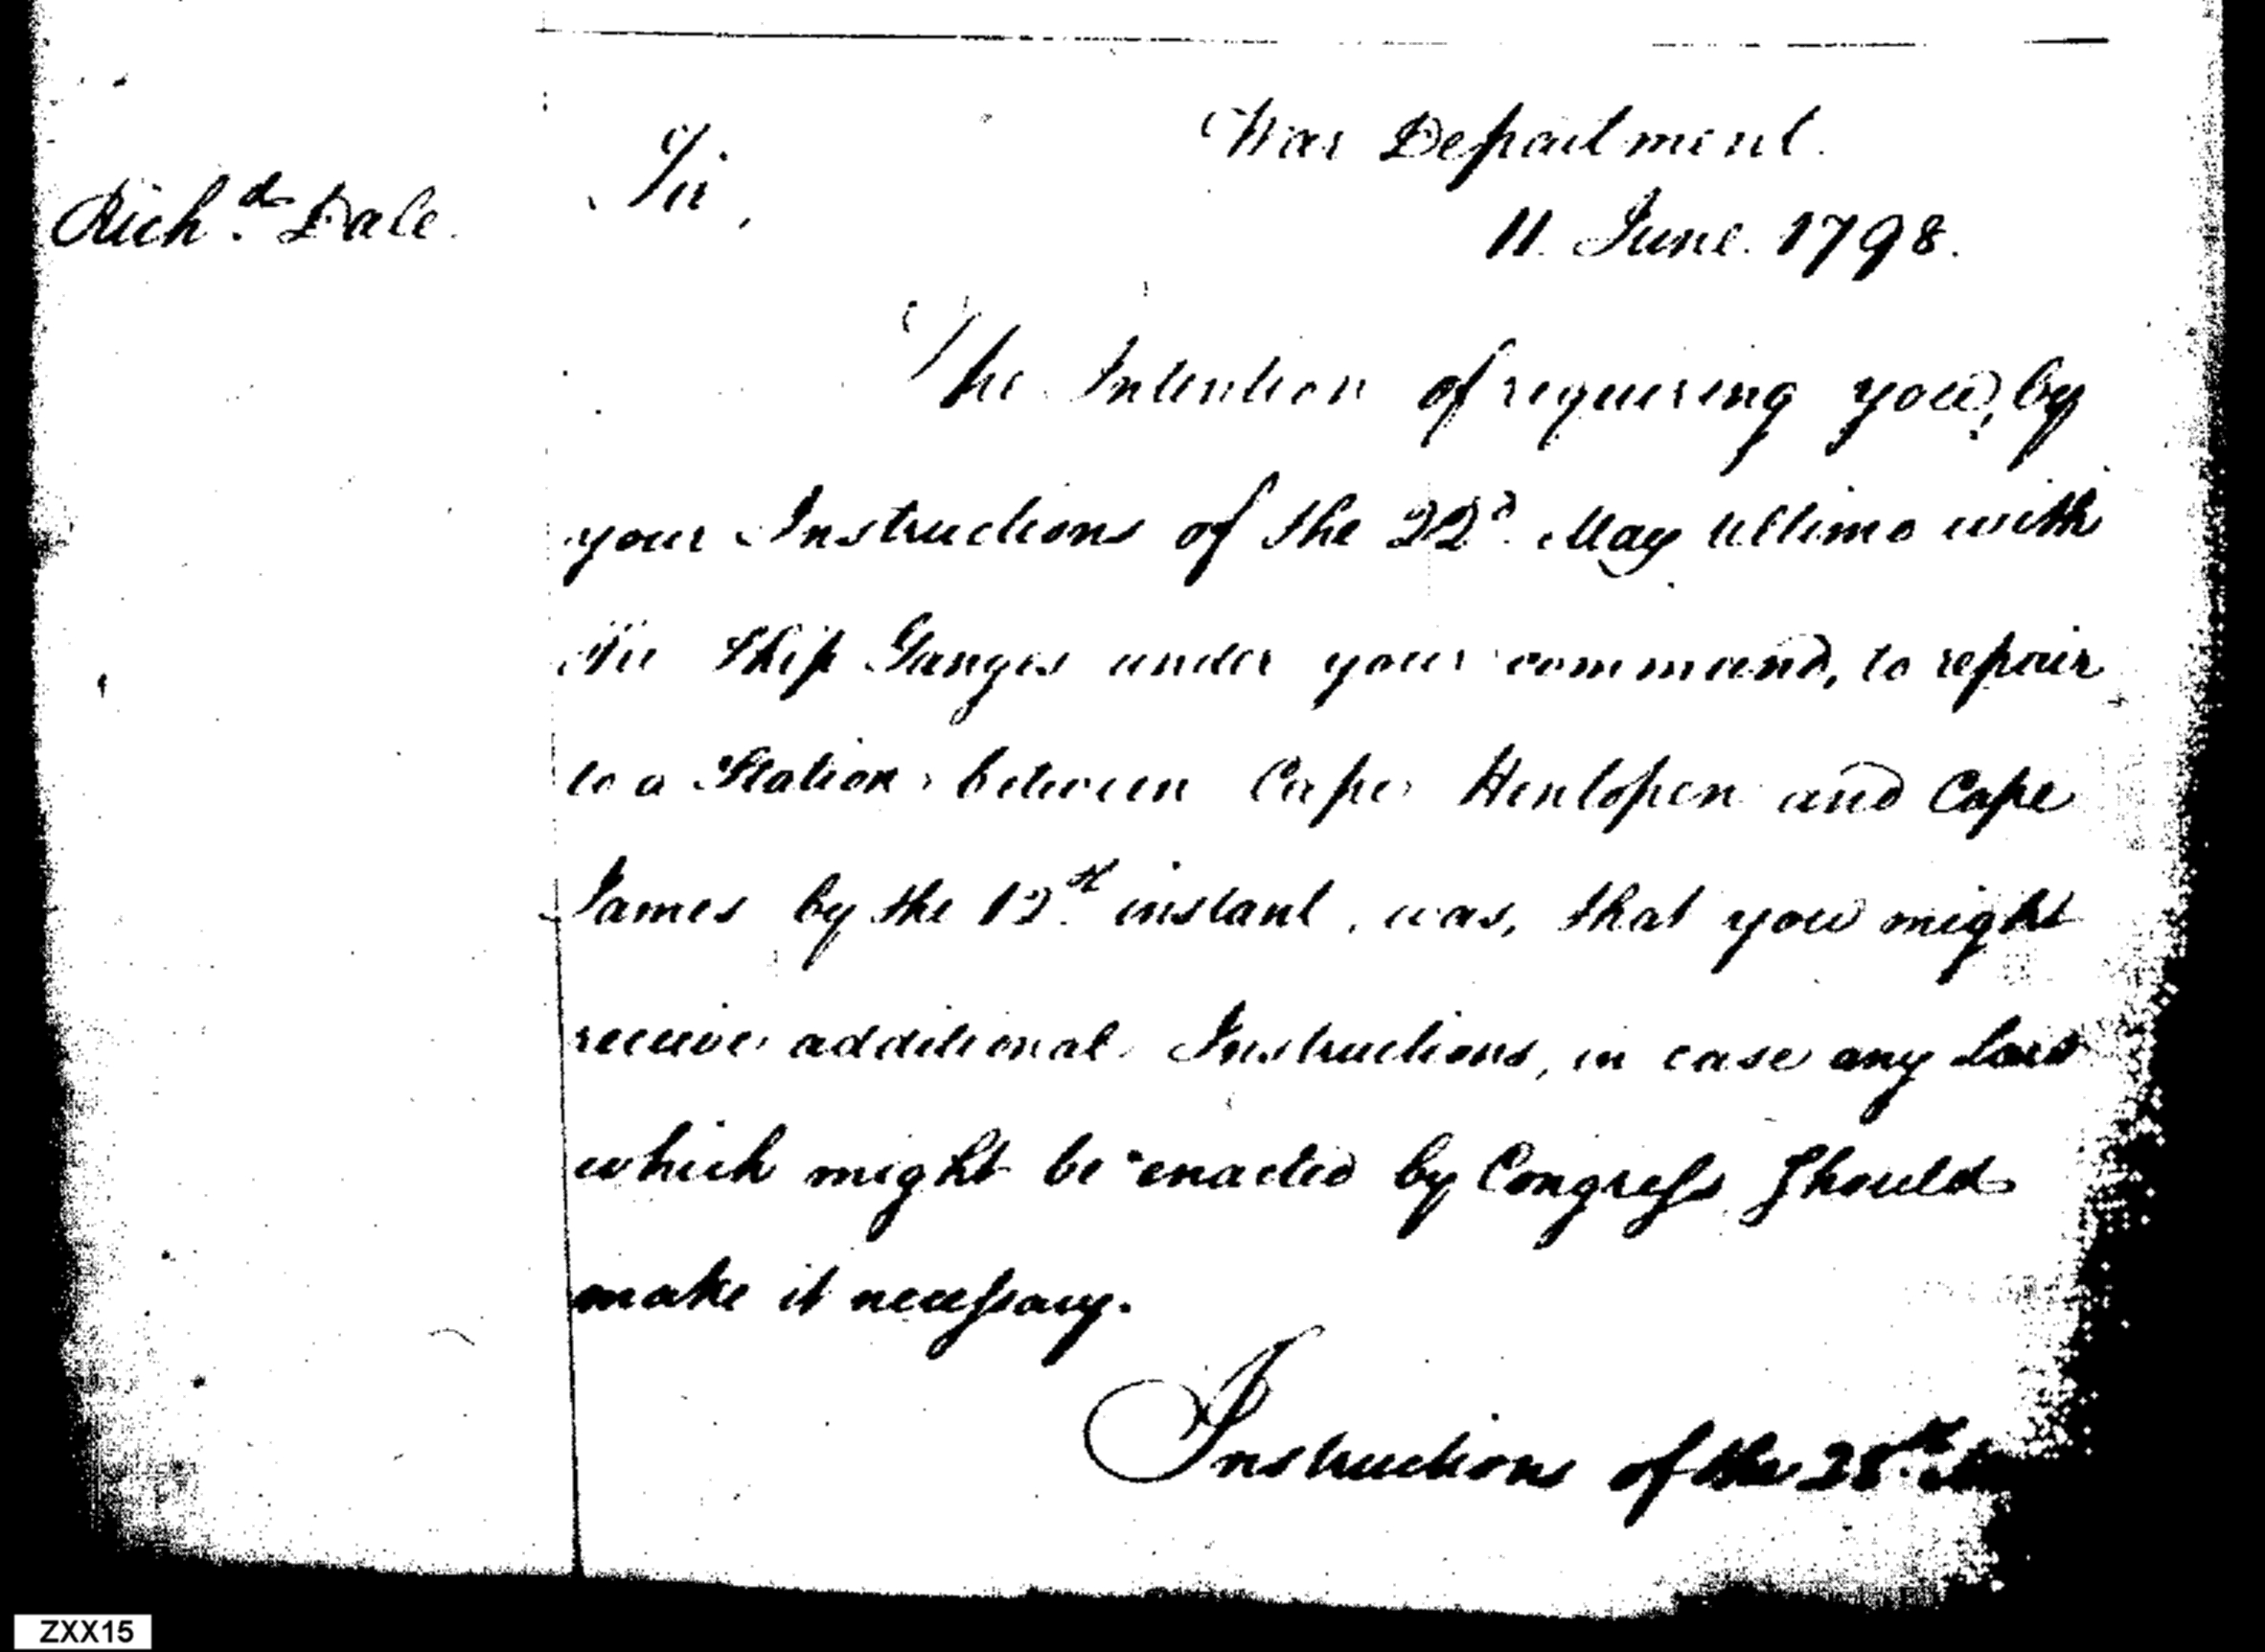 War Department
Sir,
Rich.d Dale.
11 June 1798.
The Intention of requiring you, by
your Instructions of the 22d May Ultimo with
the Ship Ganges under your command, to repair
to a Station between Cape Henlopen and Cape
James by the 12th instant, was, that you might
receive additional Instructions, in case any Law
which might be enacted by Congress Should
make it necessary.
Instructions of the 28th
ZXX15